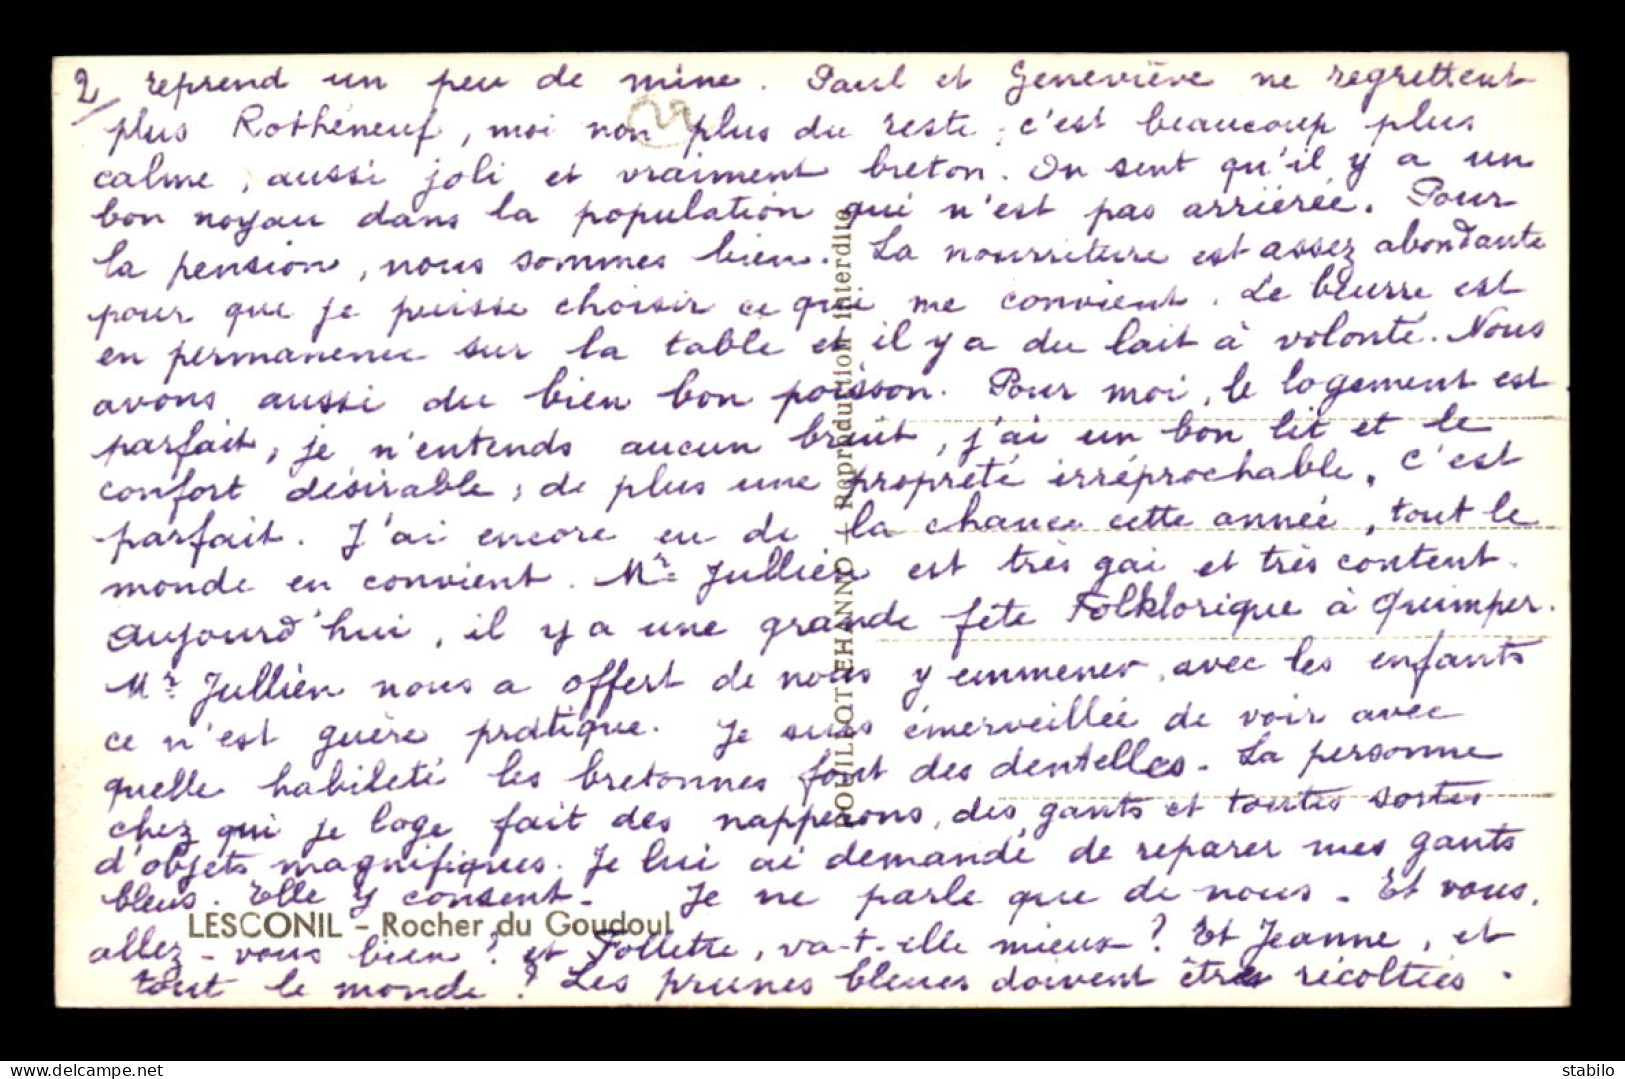 2/ reprend un peu de mine. Paul et Geneviève ne regrettent
plus Rothéneuf, moi non plus du reste, c'est beaucoup plus
calme, aussi joli et vraiment breton. On sent qu'il y a un
bon noyau dans la population qui n'est pas arriérée. Pour
la pension, nous sommes bien. La nourriture est assez abondante
pour que je puisse choisir ce qui me convient. Le beurre est
en permanence sur la table et il y a du lait à volonté. Nous
avons aussi du bien bon poisson. Pour moi, le logement est
parfait, je n'entends aucun bruit, j'ai un bon lit et le
confort désirable, de plus une propreté irréprochable. C'est
parfait. J'ai encore eu de la chance cette année, tout le
monde en convient. Mr Jullien est très gai et très content.
Aujourd'hui, il y a une grande fête Folklorique à Quimper.
Mr Jullien nous a offert de nous y emmener, avec les enfants
ce n'est guère pratique. Je suis émerveillée de voir avec
quelle habileté les bretonnes font des dentelles. La personne
chez qui je loge fait des napperons, des gants et toutes sortes
d'objets magnifiques. Je lui ai demandé de reparer mes gants
bleus. Elle y consent. Je ne parle que de nous. Et vous,
LESCONIL - Rocher du Goudoul
allez-vous bien ? et Follette, va-t-elle mieux ? Et Jeanne, et
tout le monde ? Les prunes bleues doivent être récoltées.
POUILLOT EHANNO - Reproduction interdite
29
stabilo